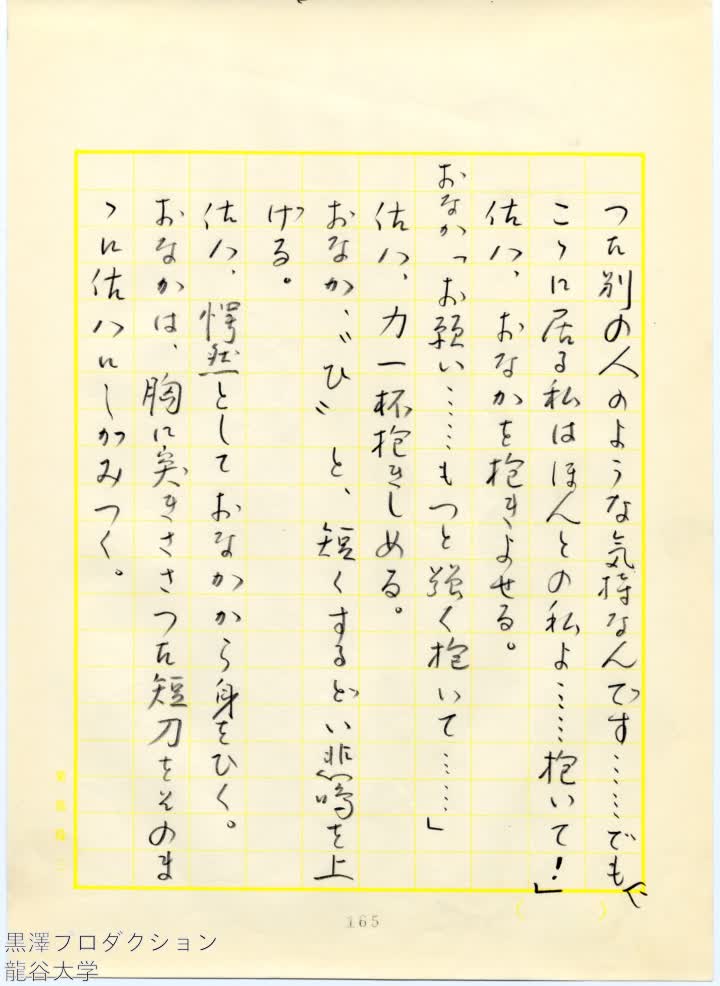 つた別の人のような気持なんです……でも、
こゝに居る私はほんとの私よ……抱いて！」
佐八、おなかを抱きよせる。
おなか「お願い……もつと強く抱いて……」
佐八、力一杯抱きしめる。
おなか、〝ひ〟と、短くするどい悲鳴を上
げる。
佐八、愕然としておなかから身をひく。
おなかは、胸に突きささつた短刀をそのま
ゝに佐八にしがみつく。
165
黒澤プロダクション
龍谷大学